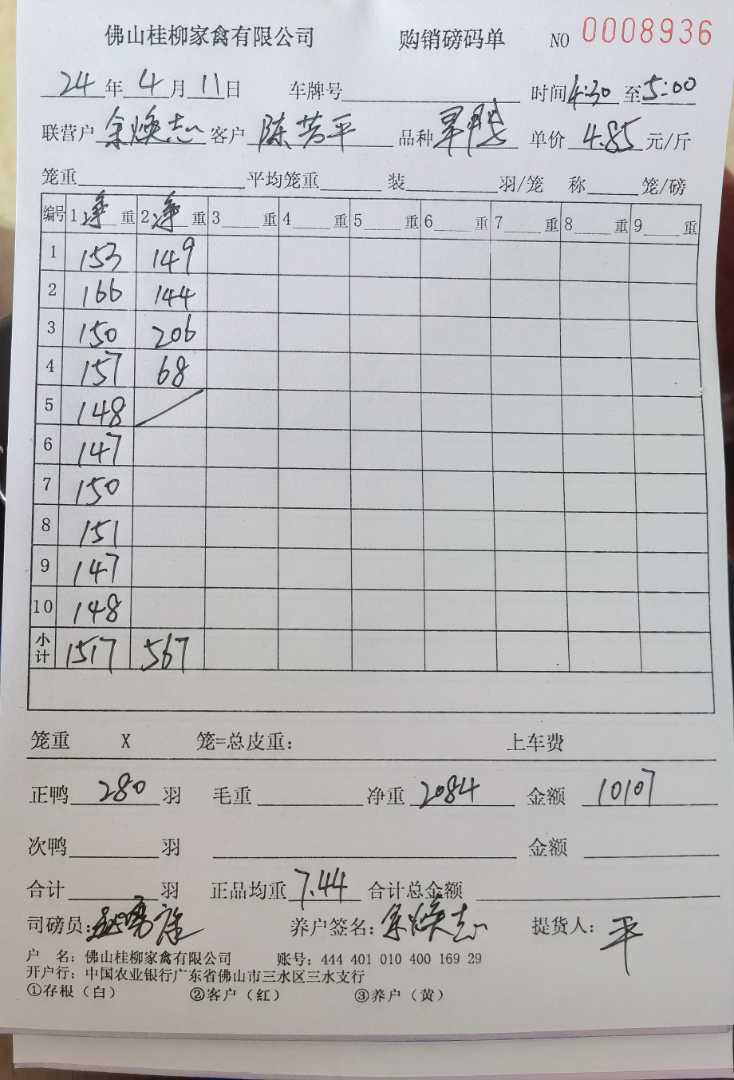 佛山桂柳家禽有限公司 购销磅码单 NO 0008936
24年4月11日 车牌号 时间4:30至5:00
联营户余焕志客户陈芳平品种 单价4.85元/斤
笼重 平均笼重 装 羽/笼 称 笼/磅
编号 1净重 2净重 3 重 4 重 5 重 6 重 7 重 8 重 9 重
1 153 149
2 166 144
3 150 206
4 157 68
5 148
6 147
7 150
8 151
9 147
10 148
小计 1517 567
笼重 X 笼=总皮重: 上车费
正鸭280羽 毛重 净重2084 金额10107
次鸭 羽 金额
合计 羽 正品均重7.44 合计总金额
司磅员: 养户签名:余焕志 提货人:平
户 名: 佛山桂柳家禽有限公司 账号: 444 401 010 400 169 29
开户行: 中国农业银行广东省佛山市三水区三水支行
①存根(白) ②客户(红) ③养户(黄)